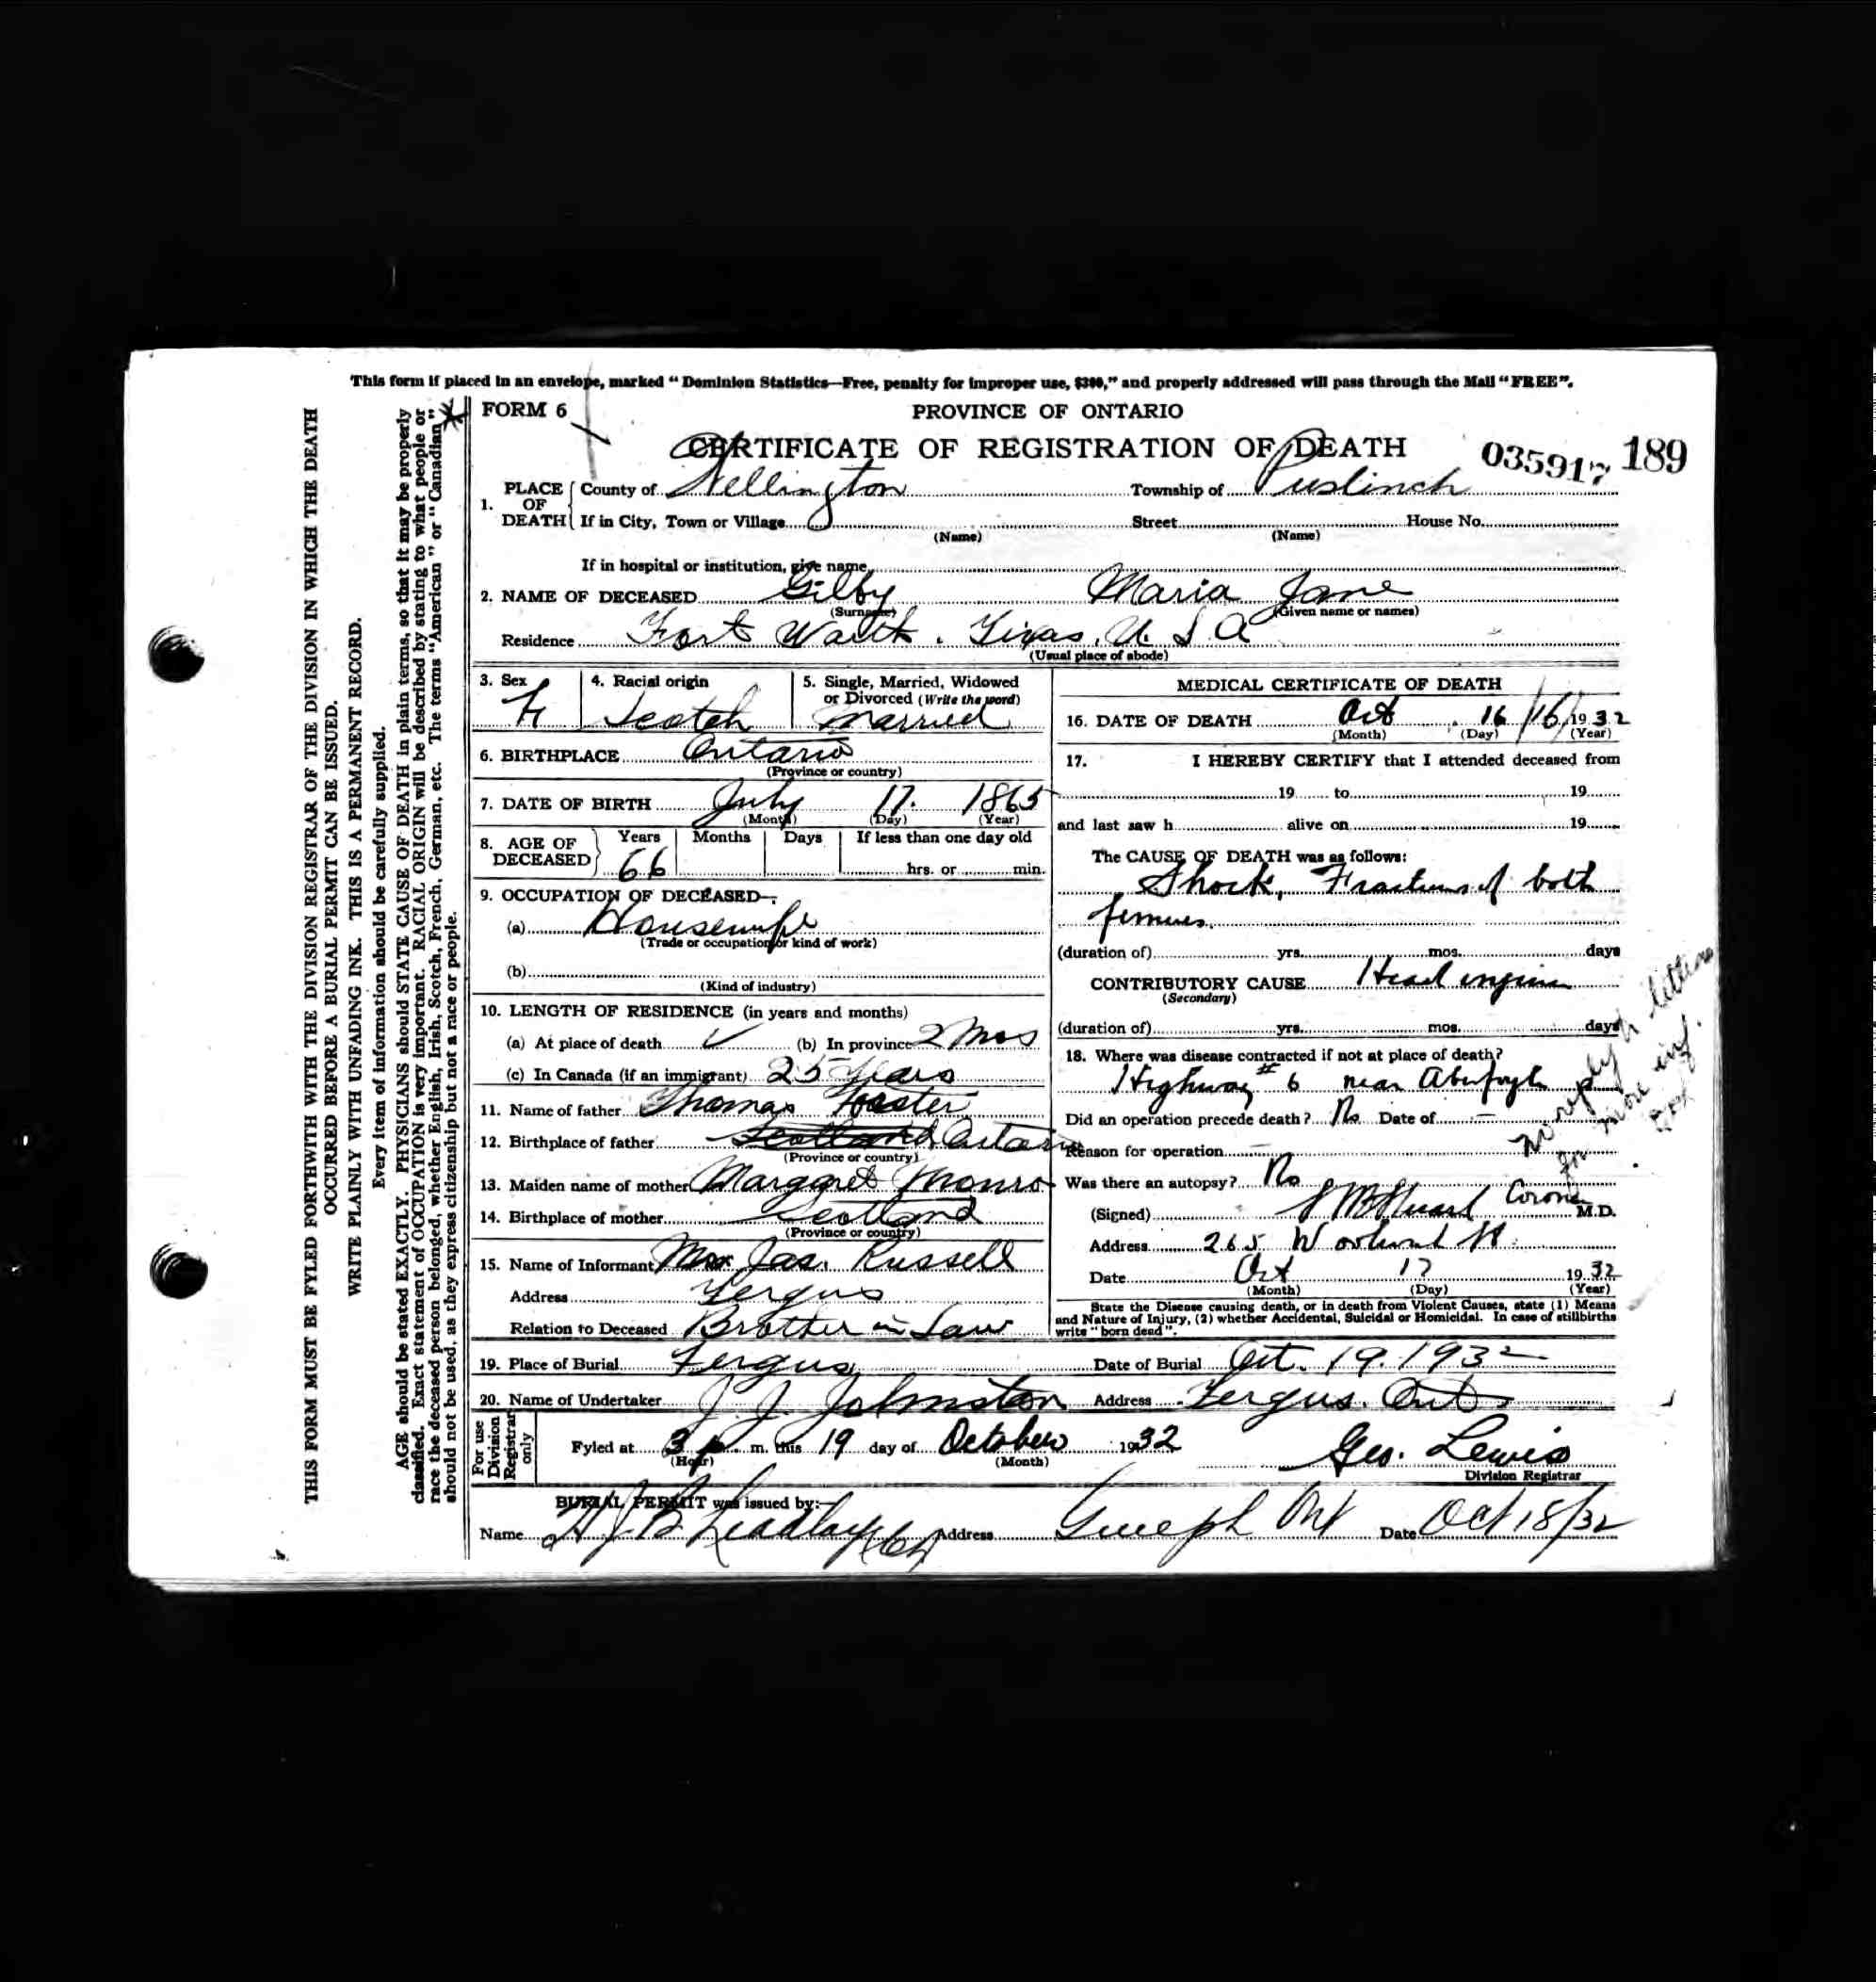 This form if placed in an envelope, marked "Dominion Statistics—Free, penalty for improper use, $300," and properly addressed will pass through the Mail "FREE".
THIS FORM MUST BE FYLED FORTHWITH WITH THE DIVISION REGISTRAR OF THE DIVISION IN WHICH THE DEATH
OCCURRED BEFORE A BURIAL PERMIT CAN BE ISSUED.
WRITE PLAINLY WITH UNFADING INK. THIS IS A PERMANENT RECORD.
Every item of information should be carefully supplied.
AGE should be stated EXACTLY. PHYSICIANS should STATE CAUSE OF DEATH in plain terms, so that it may be properly
classified. Exact statement of OCCUPATION is very important. RACIAL ORIGIN will be described by stating to what people or
race the deceased person belonged, whether English, Irish, Scotch, French, German, etc. The terms "American" or "Canadian"
should not be used, as they express citizenship but not a race or people.
FORM 6
PROVINCE OF ONTARIO
CERTIFICATE OF REGISTRATION OF DEATH 035917 189
1. PLACE OF DEATH County of Wellington Township of Puslinch
If in City, Town or Village Street House No.
(Name) (Name)
If in hospital or institution, give name
2. NAME OF DECEASED Gilby Maria Jane
(Surname) (Given name or names)
Residence Fort Worth. Texas, U. S. A
(Usual place of abode)
3. Sex F
4. Racial origin Scotch
5. Single, Married, Widowed or Divorced (Write the word) Married
6. BIRTHPLACE Ontario
(Province or country)
7. DATE OF BIRTH July 17. 1865
(Month) (Day) (Year)
8. AGE OF DECEASED Years Months Days If less than one day old
66 hrs. or min.
9. OCCUPATION OF DECEASED—
(a) Housewife
(Trade or occupation or kind of work)
(b)
(Kind of industry)
10. LENGTH OF RESIDENCE (in years and months)
(a) At place of death (b) In province 2 Mos
(c) In Canada (if an immigrant) 25 Years
11. Name of father Thomas Foster
12. Birthplace of father Scotland Ontario
(Province or country)
13. Maiden name of mother Margaret Monro
14. Birthplace of mother Scotland
(Province or country)
15. Name of Informant Jas. Russell
Address Fergus
Relation to Deceased Brother in Law
MEDICAL CERTIFICATE OF DEATH
16. DATE OF DEATH Oct 16 /16/ 1932
(Month) (Day) (Year)
17. I HEREBY CERTIFY that I attended deceased from
19 to 19
and last saw h alive on 19
The CAUSE OF DEATH was as follows:
Shock, Fractures of both
femurs.
(duration of) yrs. mos. days
CONTRIBUTORY CAUSE Head injuries
(Secondary)
(duration of) yrs. mos. days
18. Where was disease contracted if not at place of death?
Highway #6 near Aberfoyle
Did an operation precede death? No Date of —
Reason for operation —
Was there an autopsy? No
(Signed) Coroner M.D.
Address 265 Woolwich St.
Date Oct 17 1932
(Month) (Day) (Year)
State the Disease causing death, or in death from Violent Causes, state (1) Means
and Nature of Injury, (2) whether Accidental, Suicidal or Homicidal. In case of stillbirths
write "born dead".
no reply to letters
for more inf.
19. Place of Burial Fergus Date of Burial Oct. 19. 1932
20. Name of Undertaker J. J. Johnston Address Fergus. Ont
For use Division Registrar only
Fyled at 3 p. m. this 19 day of October 1932 Geo. Lewis
(Hour) (Month) Division Registrar
BURIAL PERMIT was issued by:—
Name Address Guelph Ont Date Oct 18/32